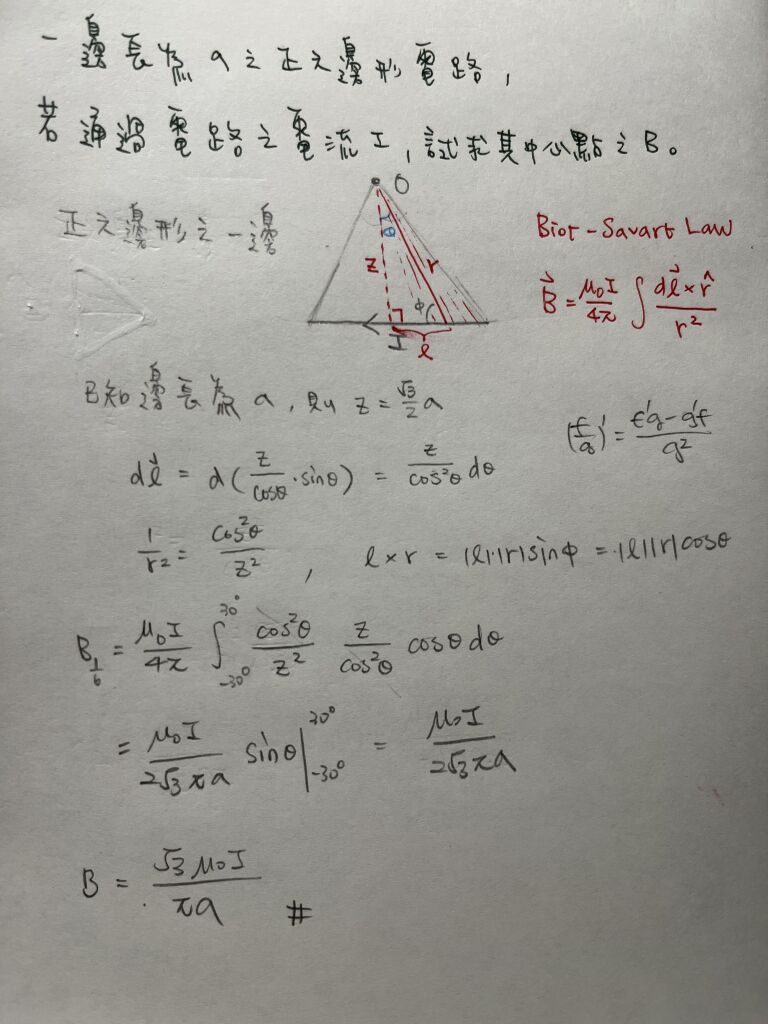 一邊長為a之正六邊形電路,
若通過電路之電流I,試求其中心點之B。
正六邊形之一邊
O
θ
z
r
φ
I
l
Biot-Savart Law
\vec{B} = \frac{μ₀I}{4π} ∫ \frac{d\vec{l} × \hat{r}}{r²}
已知邊長為a,則 z = \frac{√3}{2} a
(\frac{f}{g})' = \frac{f'g - g'f}{g²}
d\vec{l} = d(\frac{z}{cosθ}·sinθ) = \frac{z}{cos²θ} dθ
\frac{1}{r²} = \frac{cos²θ}{z²} , l × r = |l|·|r| sinφ = |l||r| cosθ
B_{\frac{1}{6}} = \frac{μ₀I}{4π} ∫_{-30°}^{30°} \frac{cos²θ}{z²} \frac{z}{cos²θ} cosθ dθ
= \frac{μ₀I}{2√3 πa} sinθ |_{-30°}^{30°} = \frac{μ₀I}{2√3 πa}
B = \frac{√3 μ₀I}{πa} #